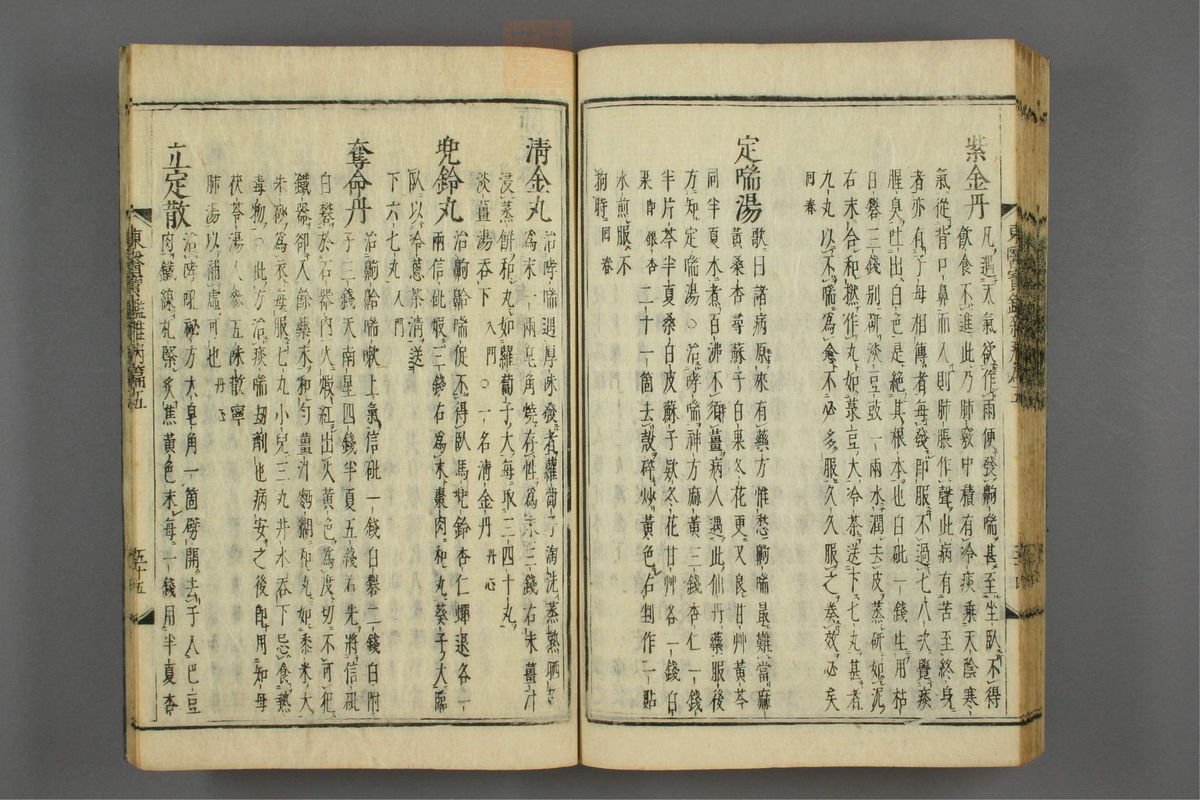 紫金丹 凡遇天氣欲作雨便發齁喘甚至坐臥不得
飮食不進此乃肺竅中積有冷痰乘天陰寒
氣從背口鼻而入則肺脹作聲此病有苦至終身
者亦有子母相傳者每發卽服不過七八次覺痰
腥臭吐出白色是絶其根本也白砒一錢生用枯
白礬三錢別研淡豆豉一兩水潤去皮蒸研如泥
右末合和撚作丸如菉豆大冷茶送下七丸甚者
九丸以不喘爲愈不必多服久久服之奏效必矣
同春
定喘湯 歌曰諸病原來有藥方惟愁齁喘最難當麻
黃桑杏尋蘇子白果冬花更又良甘艸黃芩
同半夏水煮百沸不須薑病人遇此仙丹藥服後
方知定喘湯○治哮喘神方麻黃三錢杏仁一錢
半片芩半夏桑白皮蘇子款冬花甘艸各一錢白
果卽銀杏二十一箇去殼碎炒黃色右剉作一貼
水煎服不
拘時同春
淸金丸 治哮喘遇厚味發者蘿葍子淘洗蒸熟晒乾
爲末一兩皂角燒存性爲末三錢右末薑汁
浸蒸餅和丸如蘿葍子大每取三四十丸
淡薑湯呑下入門○一名淸金丹丹心
兜鈴丸 治齁䶎喘促不得臥馬兜鈴杏仁燀退各二
兩信砒煆三錢右爲末棗肉和丸葵子大臨
臥以冷葱茶淸送
下六七丸入門
奪命丹 治齁䶎喘嗽上氣信砒一錢白礬二錢白附
子三錢天南星四錢半夏五錢右先將信砒
白礬於石器內火煆紅出灰黃色爲度切不可犯
鐵器卻入餘藥末和勻薑汁麪糊和丸如黍米大
朱砂爲衣每服七丸小兒三丸井水呑下忌食熱
毒物○此方治痰喘劫劑也病安之後卽用知母
茯苓湯人參五味散寧
肺湯以補虛可也丹心
立定散 治哮吼秘方大皂角一箇劈開去子入巴豆
肉鐵線札緊炙焦黃色末每一錢用半夏杏
東醫寶鑑雜病篇五